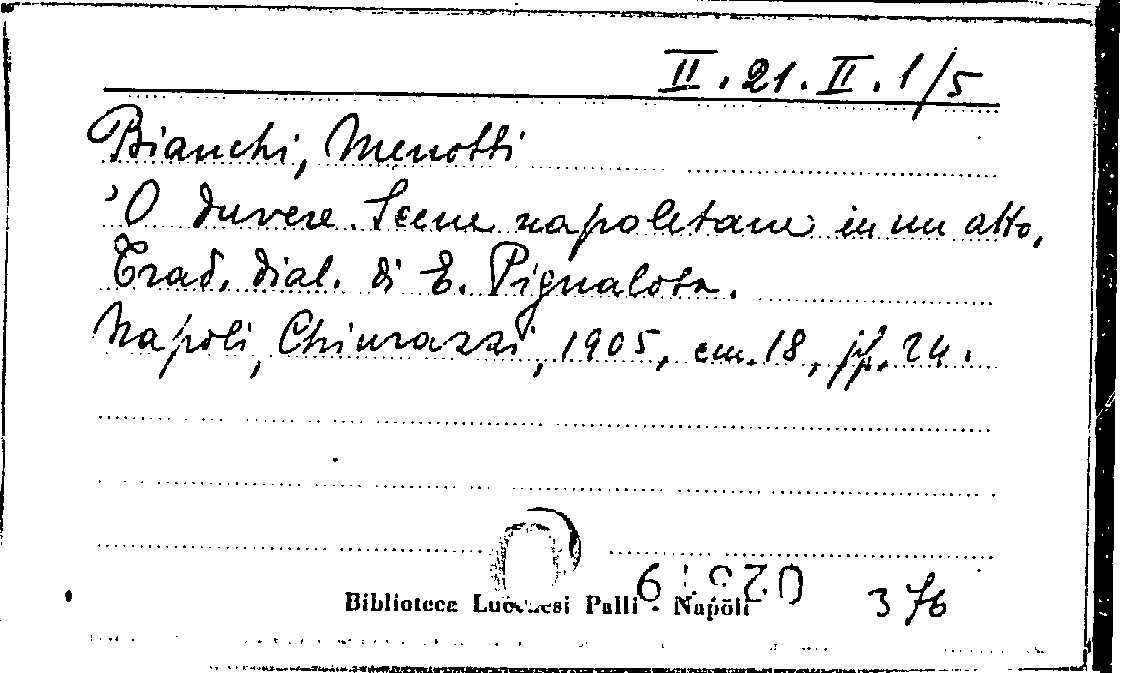 II. 21. II. 1/5
Bianchi, Menotti
'O duvere. Scene napoletane in un atto,
Trad. dial. di E. Pignalosa.
Napoli, Chiurazzi, 1905, cm. 18, pp. 24.
Biblioteca Lucchesi Palli - Napoli
376